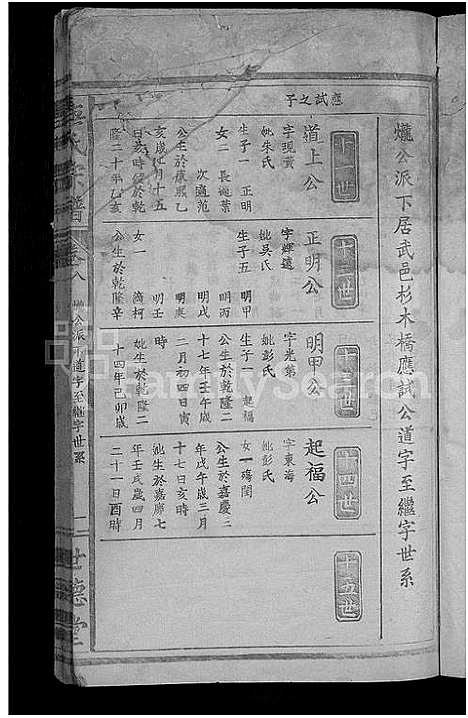 爔公派下居武邑杉木橋應試公道字至繼字世系
十一世
應試之子
道上公
字現黃
妣朱氏
生子一 正明
女二 長適葉
次適范
公生於康熙乙
亥歲 月十五
日亥時 於乾
隆二十年乙亥
十二世
正明公
字輝遠
妣吳氏
生子五 明甲
明丙
明戊
明庚
明壬
女一 適柯
公生於乾隆辛
十三世
明甲公
字光第
妣彭氏
生子一 起福
公生於乾隆二
十七年壬午歲
二月初四日寅
時
妣生於乾隆二
十四年己卯歲
十四世
起福公
字東海
妣彭氏
女一 瑒閏
公生於嘉慶二
年戊午歲三月
十七日亥時
妣生於嘉慶七
年壬戌歲四月
二十一日酉時
十五世
氏宗譜
卷八
公派下道字至繼字世系
二 世德堂
FamilySearch